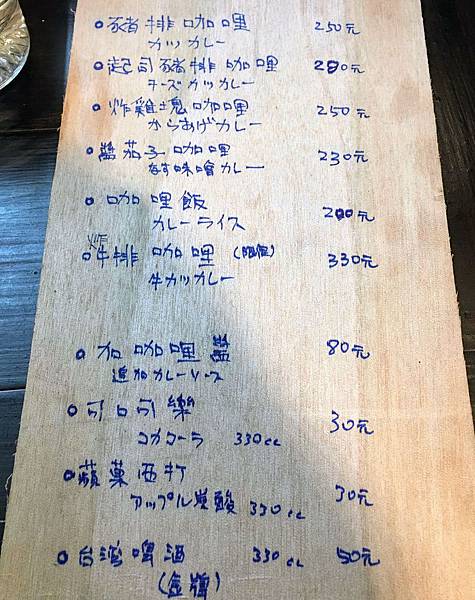 豬排咖哩 250元
カツカレー
起司豬排咖哩 280元
チーズカツカレー
炸雞塊咖哩 250元
からあげカレー
醬茄子咖哩 230元
なす味噌カレー
咖哩飯 200元
カレーライス
炸牛排咖哩 330元
牛カツカレー
加咖哩醬 80元
追加カレーソース
可口可樂 30元
コカコーラ 330cc
蘋菓西打
アップル炭酸 330cc 30元
台灣啤酒 330cc 50元
(金牌)